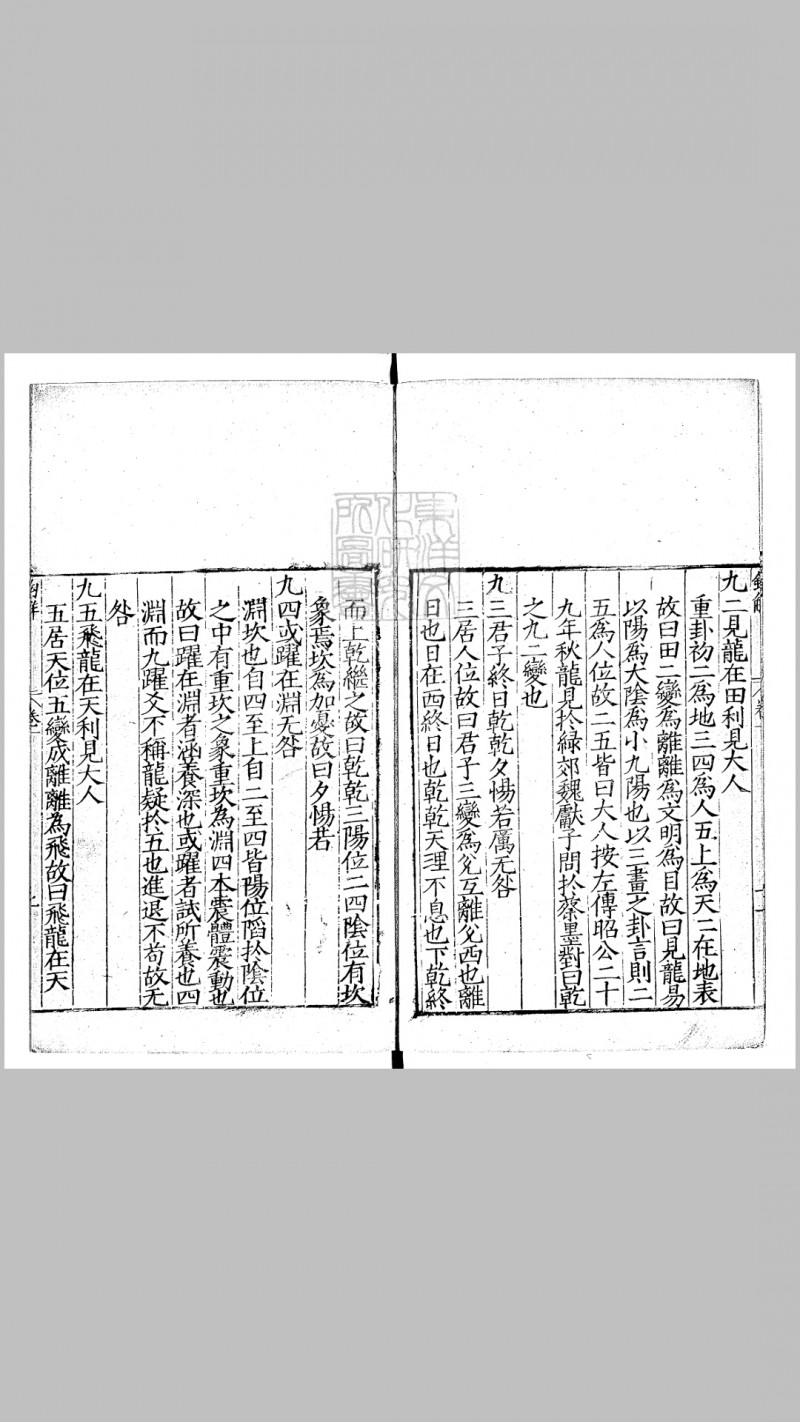 九二見龍在田利見大人
重卦初二為地三四為人五上為天二在地表
故曰田二變為離離為文明為目故曰見龍易
以陽為大陰為小九陽也以三畫之卦言則二
五為人位故二五皆曰大人按左傳昭公二十
九年秋龍見於緑郊魏獻子問於蔡墨對曰乾
之九二變也
九三君子終日乾乾夕惕若厲无咎
三居人位故曰君子三變為兌互離兌西也離
日也日在西終日也乾乾天理不息也下乾終
而上乾繼之故曰乾乾三陽位二四陰位有坎
象焉坎為加憂故曰夕惕若
九四或躍在淵无咎
淵坎也自四至上自二至四皆陽位䧟於陰位
之中有重坎之象重坎為淵四本震體震動也
故曰躍在淵者涵養深也或躍者試所養也四
淵而九躍爻不稱龍疑於五也進退不苟故无
咎
九五飛龍在天利見大人
五居天位五變成離離為飛故曰飛龍在天